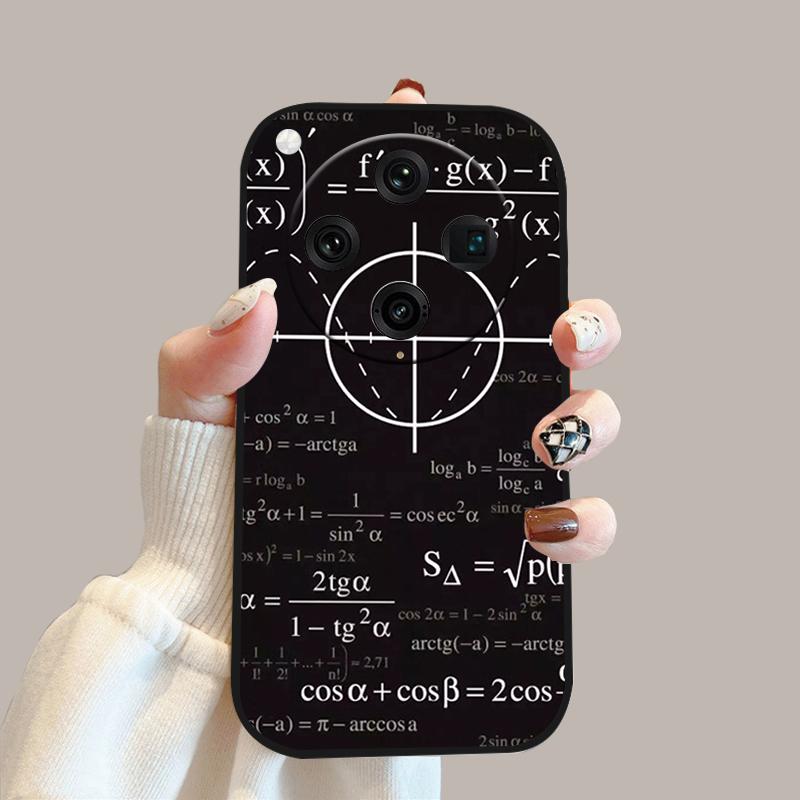 sin α cos α
logₐ b/c = logₐ b – lo
(x)/(x))′ = f′ · g(x) – f / g²(x)
cos 2α = c
+ cos² α = 1
–a) = –arctga
logₐ b = log꜀ b / log꜀ a
= r logₐ b
tg²α+1 = 1/sin² α = cosec²α
sin α
os x)² = 1–sin 2x
S_Δ = √p(p
α = 2tgα / 1– tg²α
tgx =
cos 2α = 1 – 2 sin² α
arctg(–a) = –arctg
+ 1/1! + 1/2! +...+ 1/n!) ≈ 2,71
cos α + cos β = 2 cos
s(–a) = π – arccos a
2 sin α